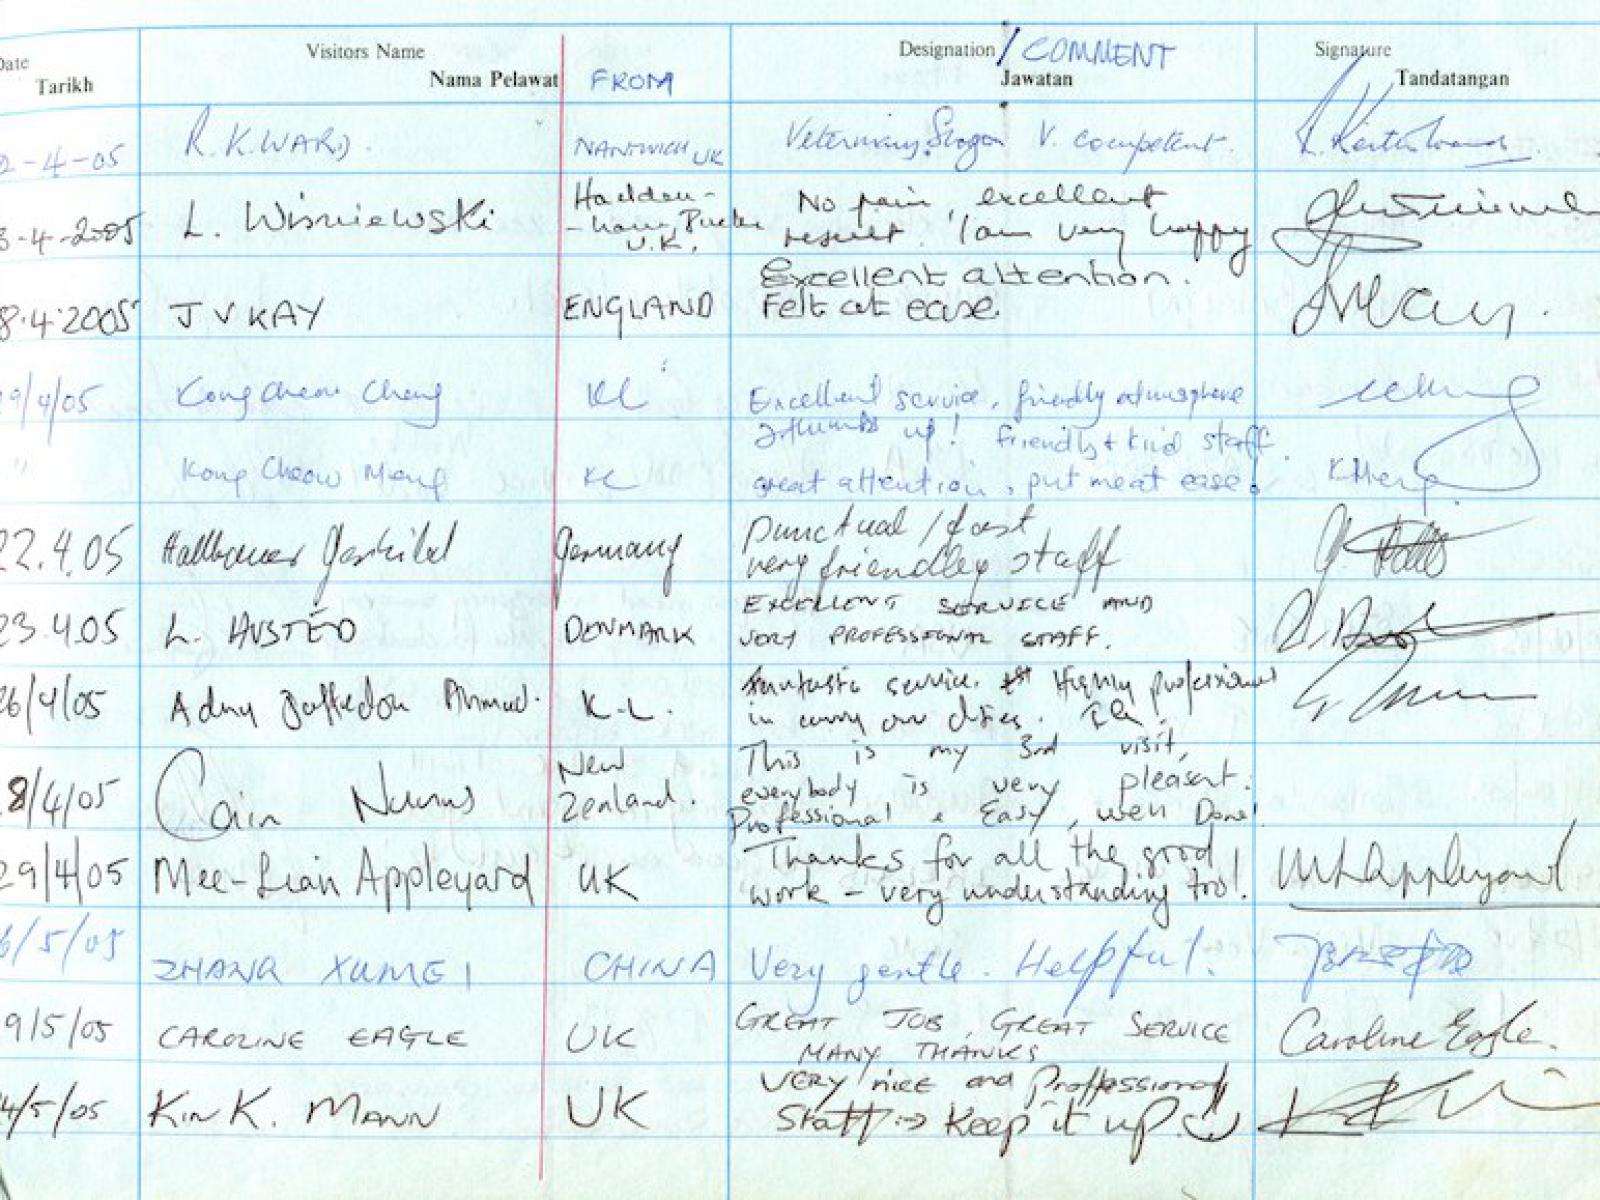 Date Visitors Name Designation / COMMENT Signature
Tarikh Nama Pelawat FROM Jawatan Tandatangan
2-4-05 R.K.WARD. NANTWICH UK Veterinary Surgeon V. competent.
3-4-2005 L. Wiśniewski U.K. No pain, excellent
result. I am very happy
8.4.2005 J V KAY ENGLAND Excellent attention.
Felt at ease.
19/4/05 Kong Cheow Cheng KL Excellent service, friendly atmosphere
2 thumbs up! friendly & kind staff.
" Kong Cheow Meng KL great attention, put me at ease!
22.4.05 Germany punctual / fast
very friendley staff
23.4.05 L. HUSTED DENMARK EXCELLENT SERVICE AND
VERY PROFESSIONAL STAFF.
26/4/05 Ahmad. K.L. Fantastic service. Highly professional
in carry our duties.
8/4/05 Cain New
Zealand. This is my 3rd visit,
everybody is very pleasent.
Professional & Easy, well Done!
29/4/05 Mee-Lian Appleyard UK Thanks for all the good
work - very understanding too! MLAppleyard
6/5/05 ZHANG XUMEI CHINA Very gentle. Helpful.
9/5/05 CAROLINE EAGLE UK GREAT JOB, GREAT SERVICE
MANY THANKS Caroline Eagle.
4/5/05 KIN K. MANN UK VERY nice and Proffessional
Staff :-) Keep it up